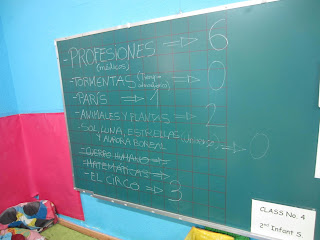 -PROFESIONES => 6
(médicos)
-TORMENTAS (Tiempo => 0
atmosférico)
-PARÍS => 1
-ANIMALES Y PLANTAS => 2
-SOL, LUNA, ESTRELLAS => 0
Y AURORA BOREAL
-CUERPO HUMANO =>
-MATEMÁTICAS =>
-EL CIRCO => 3
CLASS No. 4
2nd Infant S.